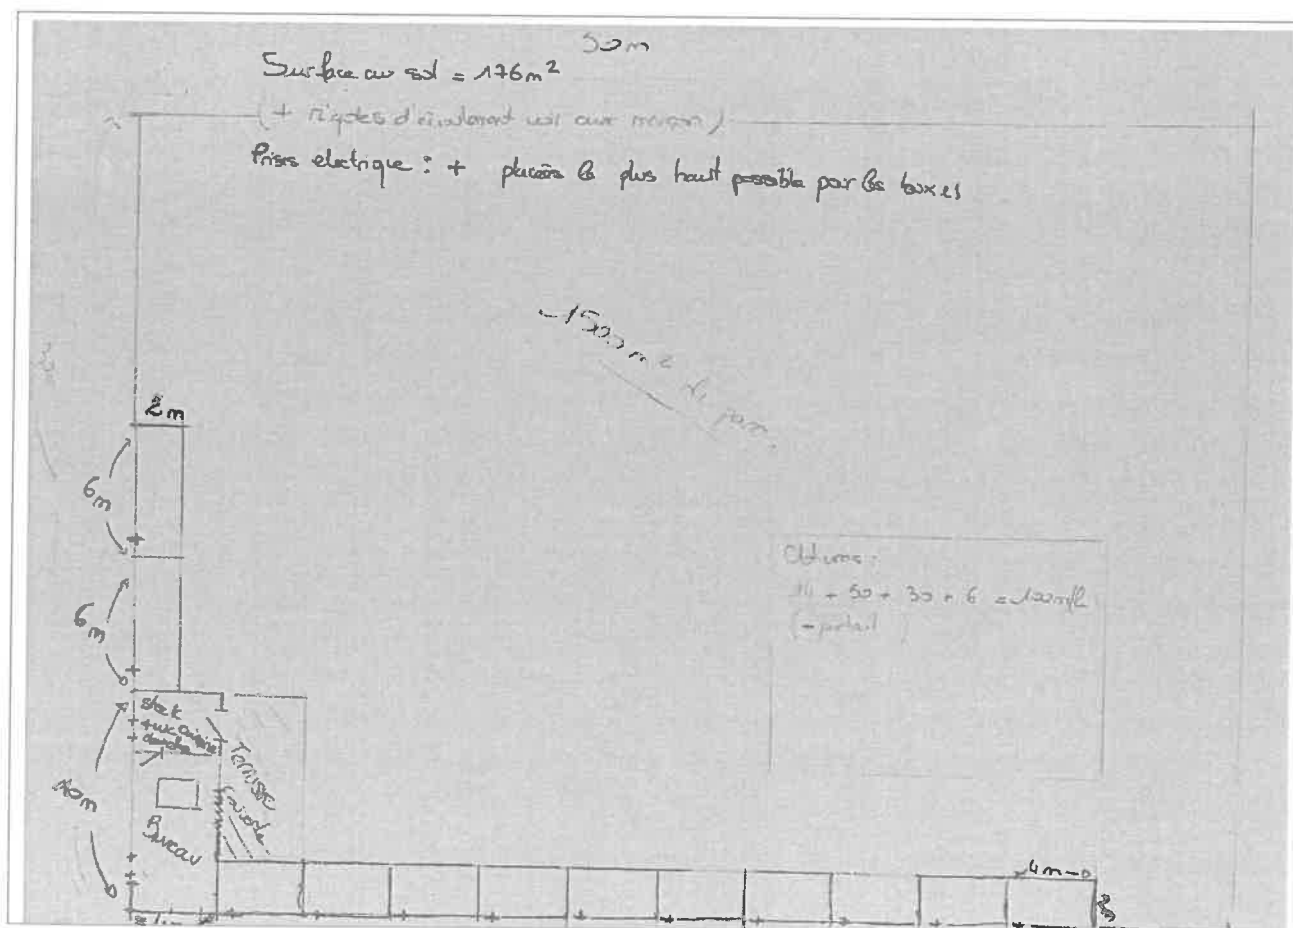 50m
Surface au sol = 176m²
(+ rigoles d'écoulement
Prises electrique : + placées le plus haut possible par les boxes
~1500m2 de parc
2m
6m
6m
Clotures :
14 + 50 + 30 + 6 = 100ml
(- portail )
stock
+ wc cuisine
douche
Terrasse
couverte
10m
Bureau
4m
2m
4m